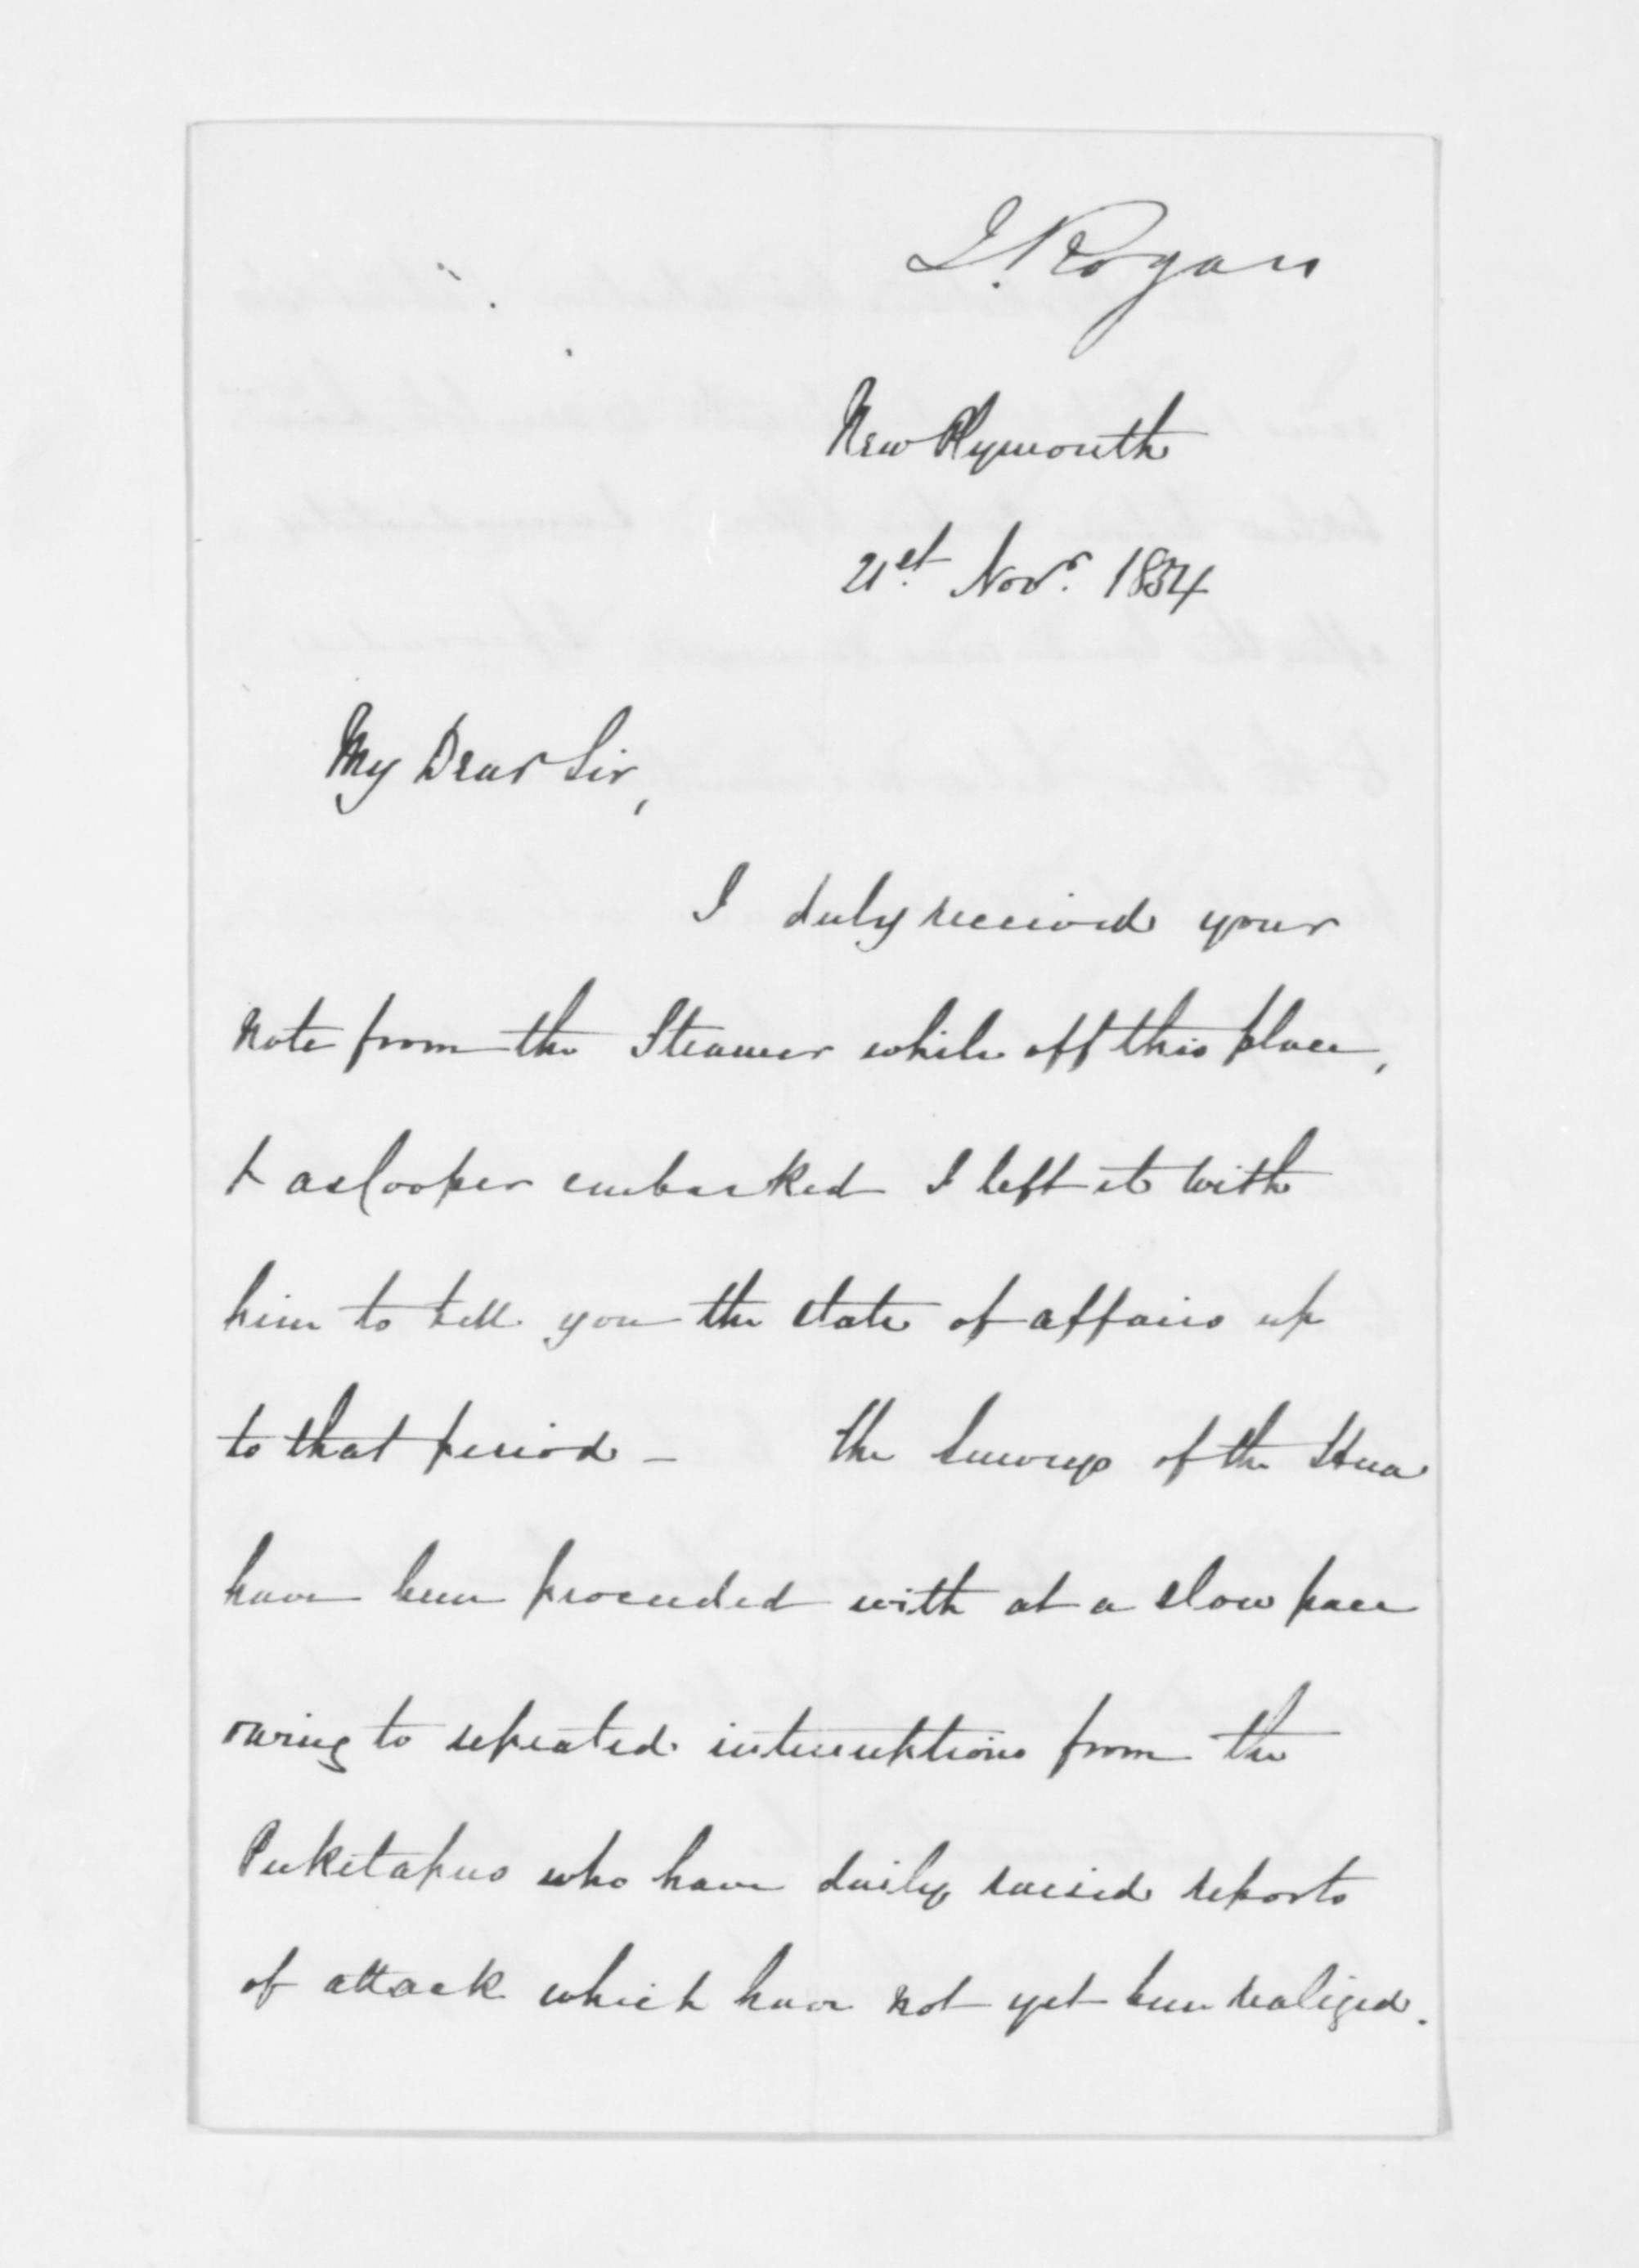 J. Rogan
New Plymouth
21st. Novr. 1854
My Dear Sir,
I duly received your
note from the Steamer while off this place,
& as Cooper embarked I left it with
him to tell you the state of affairs up
to that period – The Surveys of the Hua
have been proceeded with at a slow pace
owing to repeated interruptions from the
Puketapus who have daily raised reports
of attack which have not yet been realized.